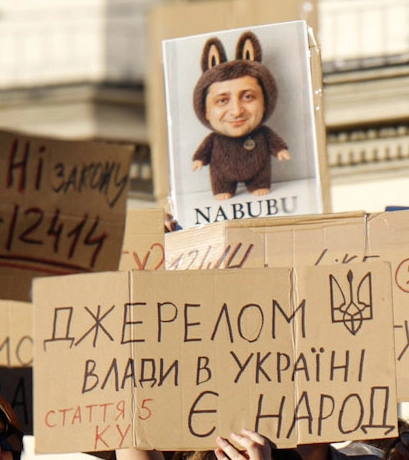 NABUBU
НІ ЗАКОНУ
12414
12414
ДЖЕРЕЛОМ
ВЛАДИ В УКРАЇНІ
Є НАРОД
СТАТТЯ 5
КУ